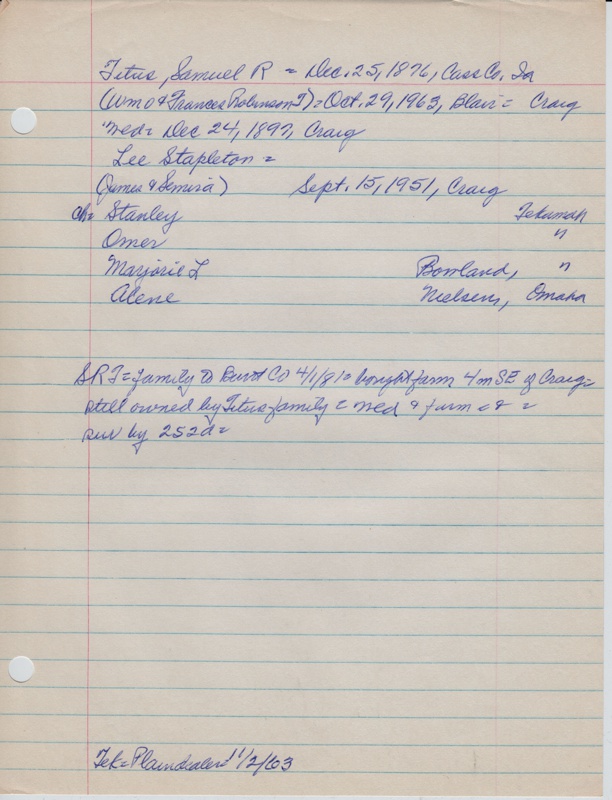 Titus, Samuel R = Dec. 25, 1876, Cass Co. Ia
(Wm O & Frances Robinson T) = Oct. 29, 1963, Blair = Craig
Wed = Dec 24, 1897, Craig
Lee Stapleton =
(James & Semira) Sept. 15, 1951, Craig
ch = Stanley Tekamah
Omer "
Marjorie L Bowland, "
Alene Nielsen, Omaha
SRT = family to Burt Co 4/1/81 = bought farm 4 m SE of Craig =
still owned by Titus family = wed & farm =
sur by 2S 2d =
Tek = Plaindealer 11/2/63